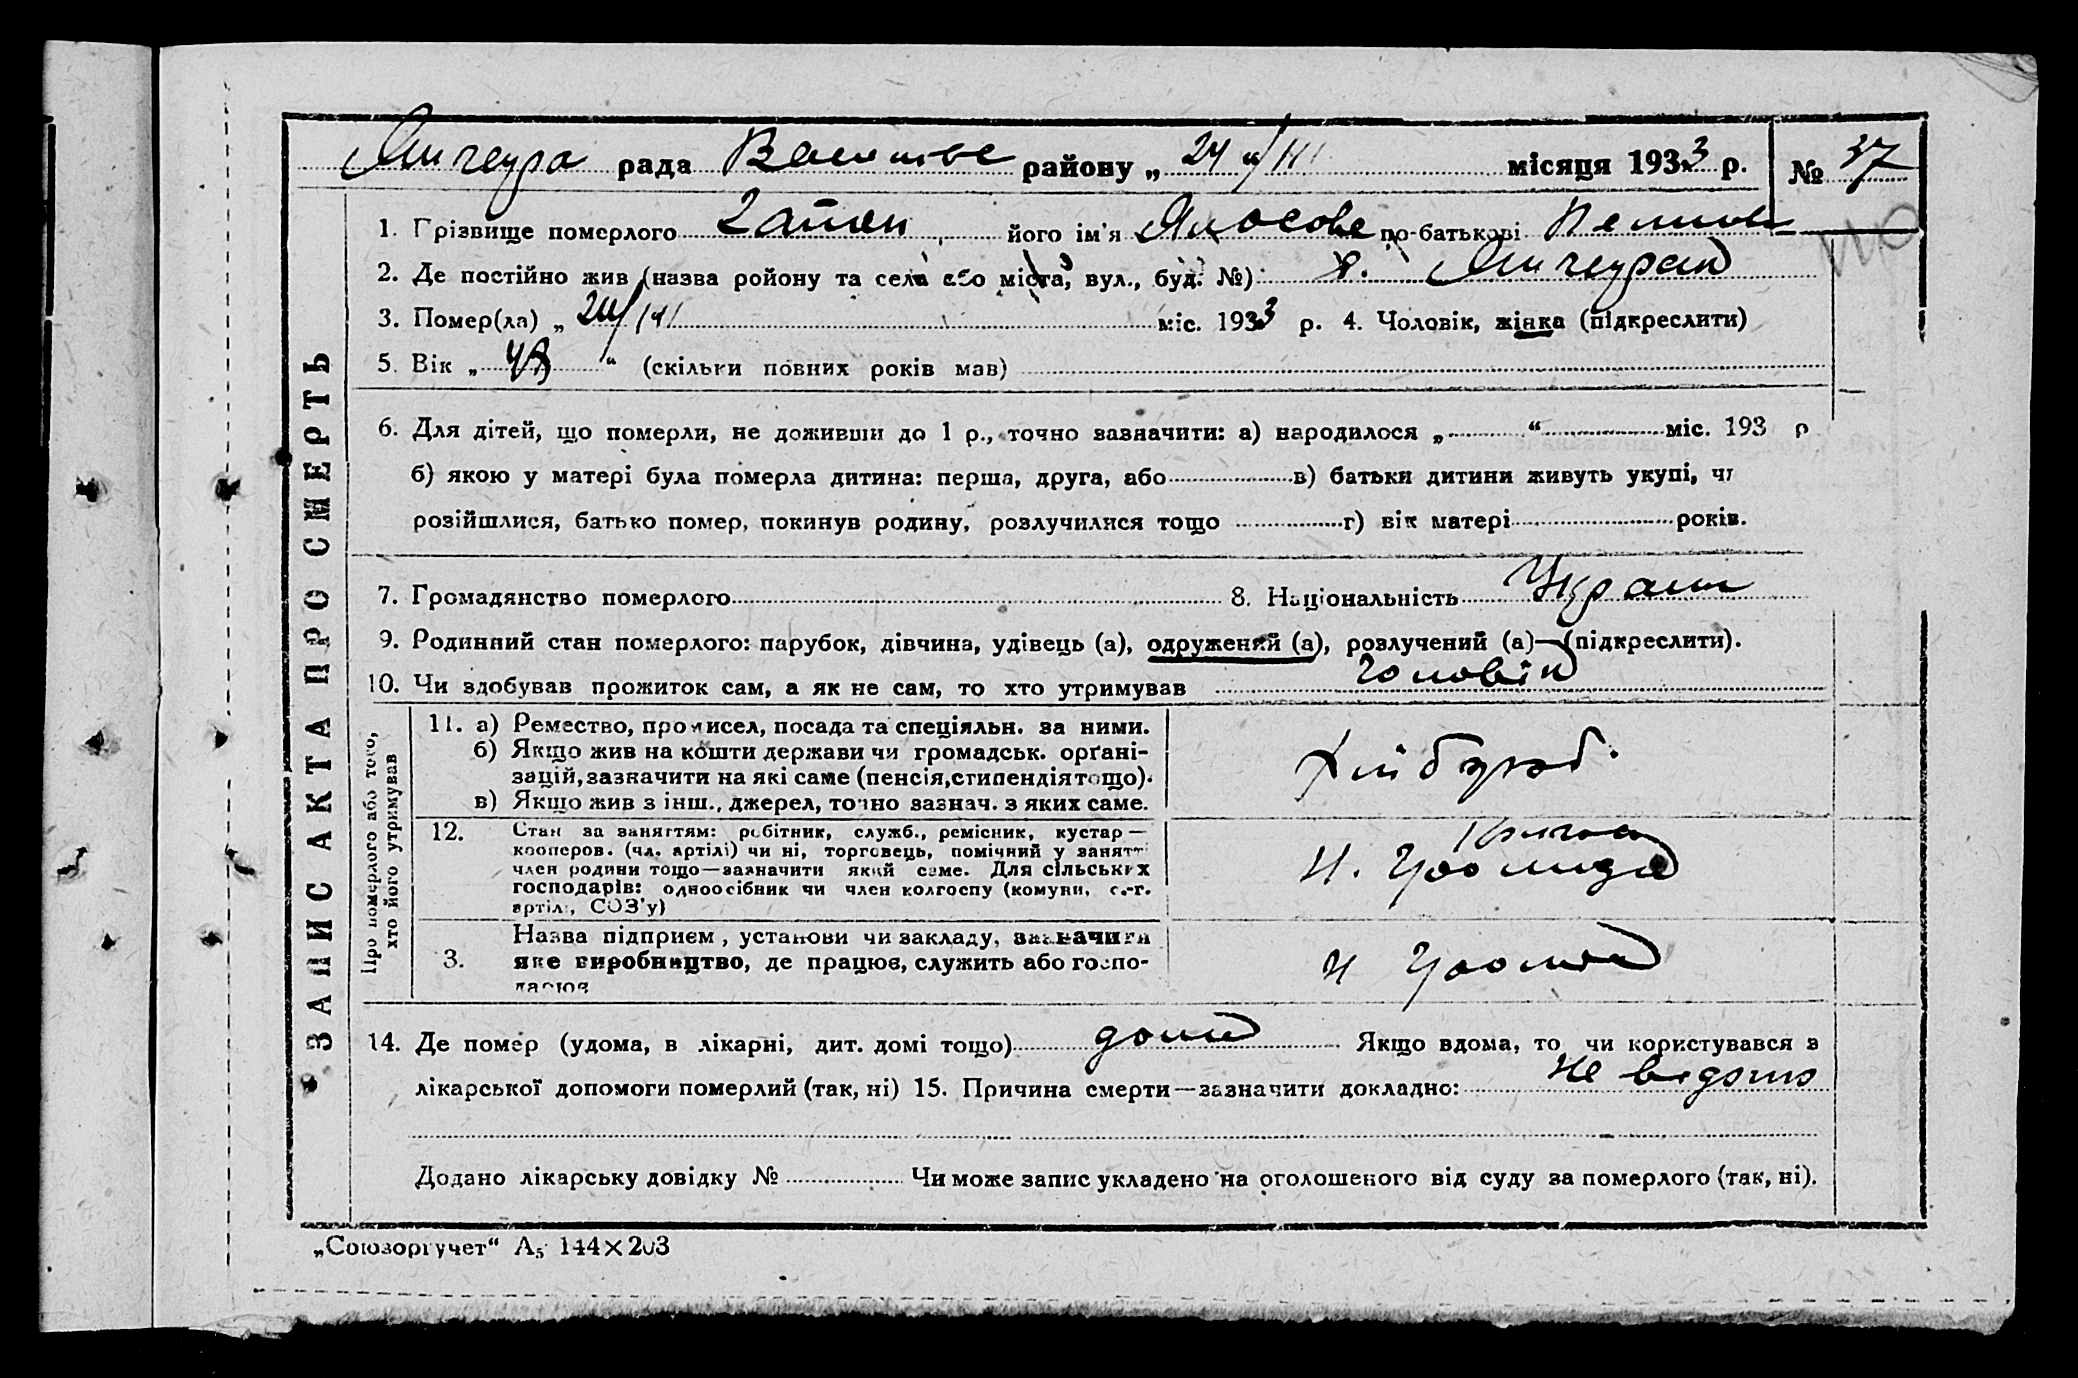 рада району „ 24 " / III місяця 1933 р. № 37
1. Прізвище померлого його ім'я по-батькові
2. Де постійно жив (назва ройону та села або міста, вул., буд. №):
3. Помер(ла) „ 24/III міс. 1933 р. 4. Чоловік, жінка (підкреслити)
5. Вік „ “ (скільки повних років мав)
6. Для дітей, що померли, не доживши до 1 р., точно зазначити: а) народилося „ “ міс. 193 р
б) якою у матері була померла дитина: перша, друга, або в) батьки дитини живуть укупі, чи
розійшлися, батько помер, покинув родину, розлучилися тощо г) вік матері років.
7. Громадянство померлого 8. Національність Україн
9. Родинний стан померлого: парубок, дівчина, удівець (а), одружений (а), розлучений (а)—(підкреслити).
10. Чи здобував прожиток сам, а як не сам, то хто утримував Чоловік
ЗАПИС АКТА ПРО СМЕРТЬ
Про померлого або того, хто його утримував
11. а) Ремество, промисел, посада та спеціяльн. за ними.
б) Якщо жив на кошти держави чи громадськ. орґані-
зацій, зазначити на які саме (пенсія, стипендія тощо).
в) Якщо жив з інш., джерел, точно зазнач. з яких саме.
Хлібороб.
12. Стан за заняттям: робітник, служб., ремісник, кустар —
кооперов. (чл. артілі) чи ні, торговець, помічний у занятті
член родини тощо—зазначити який саме. Для сільських
господарів: одноосібник чи член колгоспу (комуни, с.-г.
артілі, СОЗ'у)
3. Назва підприєм , установи чи закладу, зазначити
яке виробництво, де працює, служить або госпо-
дарює
14. Де помер (удома, в лікарні, дит. домі тощо) дома Якщо вдома, то чи користувався з
лікарської допомоги померлий (так, ні) 15. Причина смерти—зазначити докладно: не відомо
Додано лікарську довідку № Чи може запис укладено на оголошеного від суду за померлого (так, ні).
„Союзоргучет“ А₅ 144×203